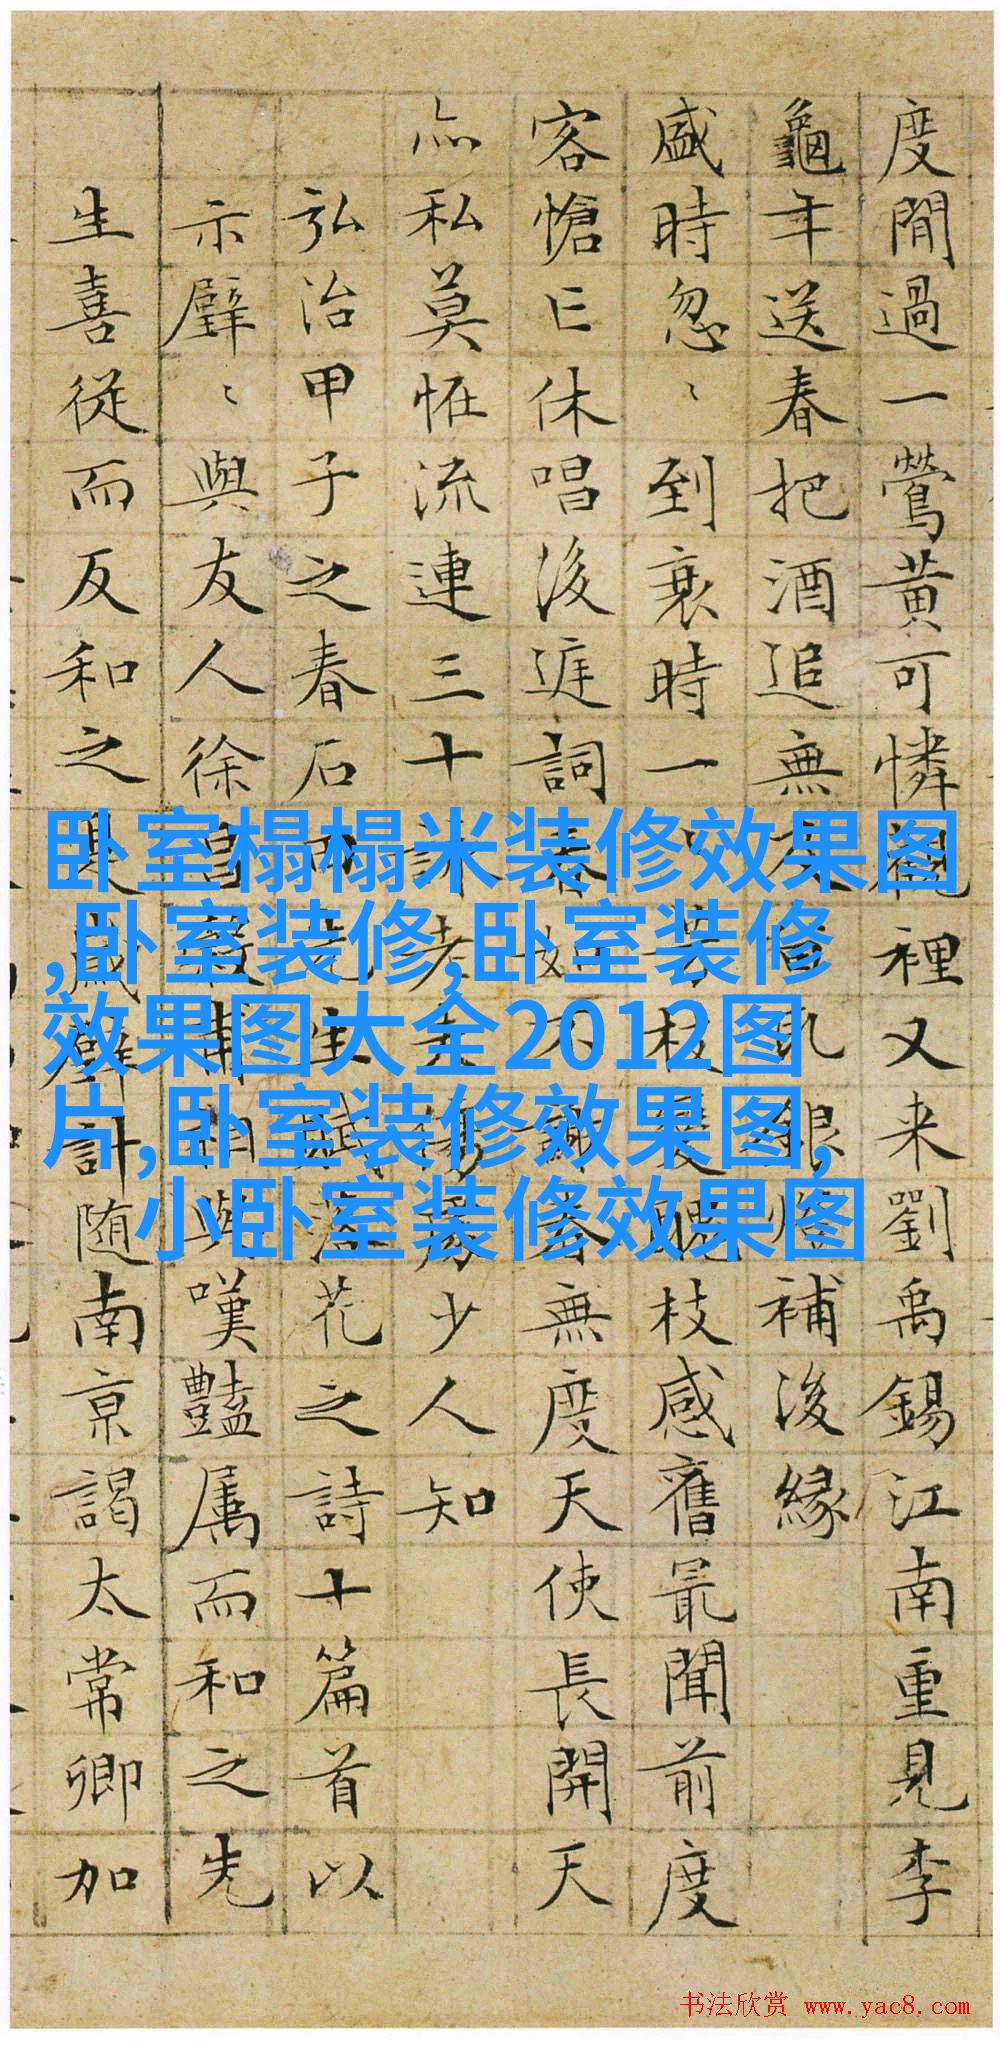 度閒過一鶯黃可憐觀裡又来劉禹錫江南重見李
龜年送春把酒追無銀燈補後緣
盛時忽〻到衰時一枝變醜枝感舊最聞前度
客愴亡休唱後庭詞春無度天使長開天
亦私莫怪流連三十少人知
弘治甲子之春石田先生賦落花之詩十篇首以
示璧〻與友人徐昌穀甫相與嘆豔属而和之先
生喜從而反和之是歲璧計随南京謁太常卿加
卧室榻榻米装修效果图
,卧室装修,卧室装修
效果图大全2012图
片,卧室装修效果图,
小卧室装修效果图
书法欣赏 www.yac8.com